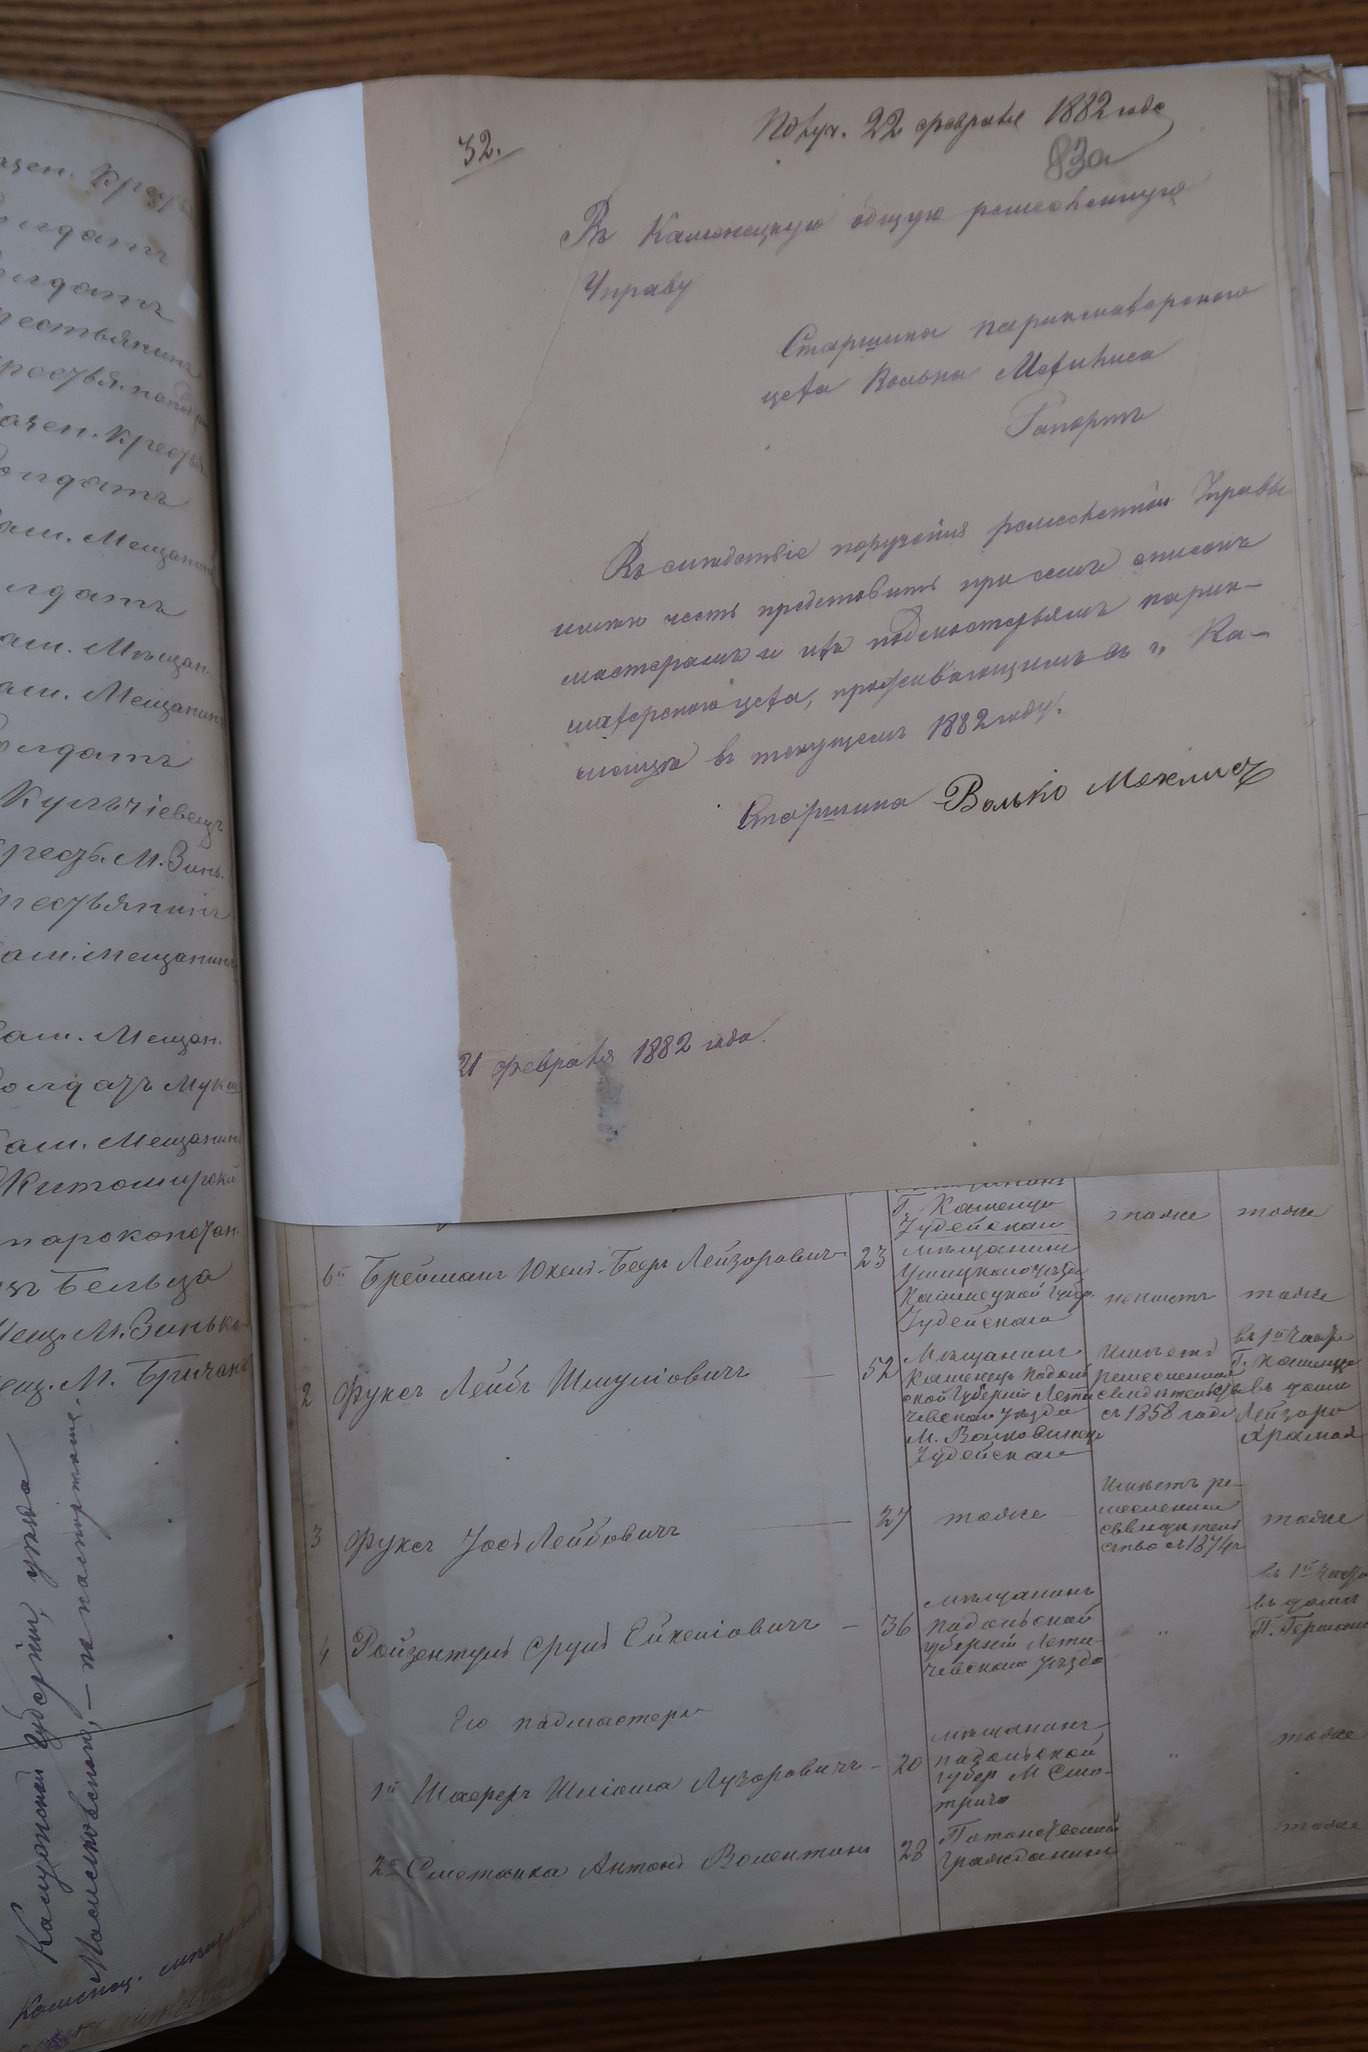 32.
Получ. 22 февраля 1882 года
83а
Въ Каменецкую общую ремесленную
Управу
Старшины парикмахерского
цеха Волька Мехлиса
Рапортъ
Въ слѣдствіе порученія ремесленной Управы
имѣю честь представить при семъ списокъ
мастерамъ и ихъ подмастерьямъ парик-
махерского цеха, проживающимъ въ г. Ка-
менцѣ въ текущемъ 1882 году.
Старшина Волько Мехлисъ
21 февраля 1882 года.
Г. Каменца
Іудейскаго
тоже тоже
6й Брейманъ Юкель-Беръ Лейзоровичъ 23
Мѣщанинъ
Ушицкого уѣзда
Каменецкой Губер
Іудейскаго
неиметъ тоже
2 Фуксъ Лейбъ Шмуліовичъ — 52
Мѣщанинъ
Каменецъ Подоль
ской Губерніи Лети
чевскаго уѣзда
М. Волковинецъ
Іудейскаго
Имѣетъ
ремесленное
свидѣтельство
съ 1858 года
въ 1й части
Г. Каменца
въ доме
Лейзора
Храмоя
3 Фуксъ Іосъ Лейбовичъ — 27 тоже
Имѣетъ ре-
месленное
свидѣтель
ство съ 1874г
тоже
4 Ройзентуль Сруль Ейхеліовичъ — 36
мѣщанинъ
Подольской
губерніи Лети-
чевскаго уѣзда
„
въ 1й части
въ доме
П. Германа
Его подмастеры
1й Шаферъ Шліома Лузоровичъ — 20
мѣщанинъ
подольской
губер М Смо-
трича
„ тоже
2й Сметанка Антонъ Валентинъ 28
Потомственный
гражданинъ
„ тоже
Крестья
Солдатъ
Солдатъ
Солдатъ
Кам. Мещанинъ
Солдатъ
Кам. Мѣщан.
Кам. Мещанинъ
Солдатъ
Кульчіевецъ
Крестъ. М. Зинь.
Крестьянинъ
Кам. Мещанинъ
Кам. Мещан.
Кам. Мещанинъ
Житомирской
Старокопстан.
Бельца
Мещ. М. Зинько
Мещ. М. Бричанъ
Калужской губерніи, уезда
Масальского, — по паспортамъ.
Каменец. мещанинъ